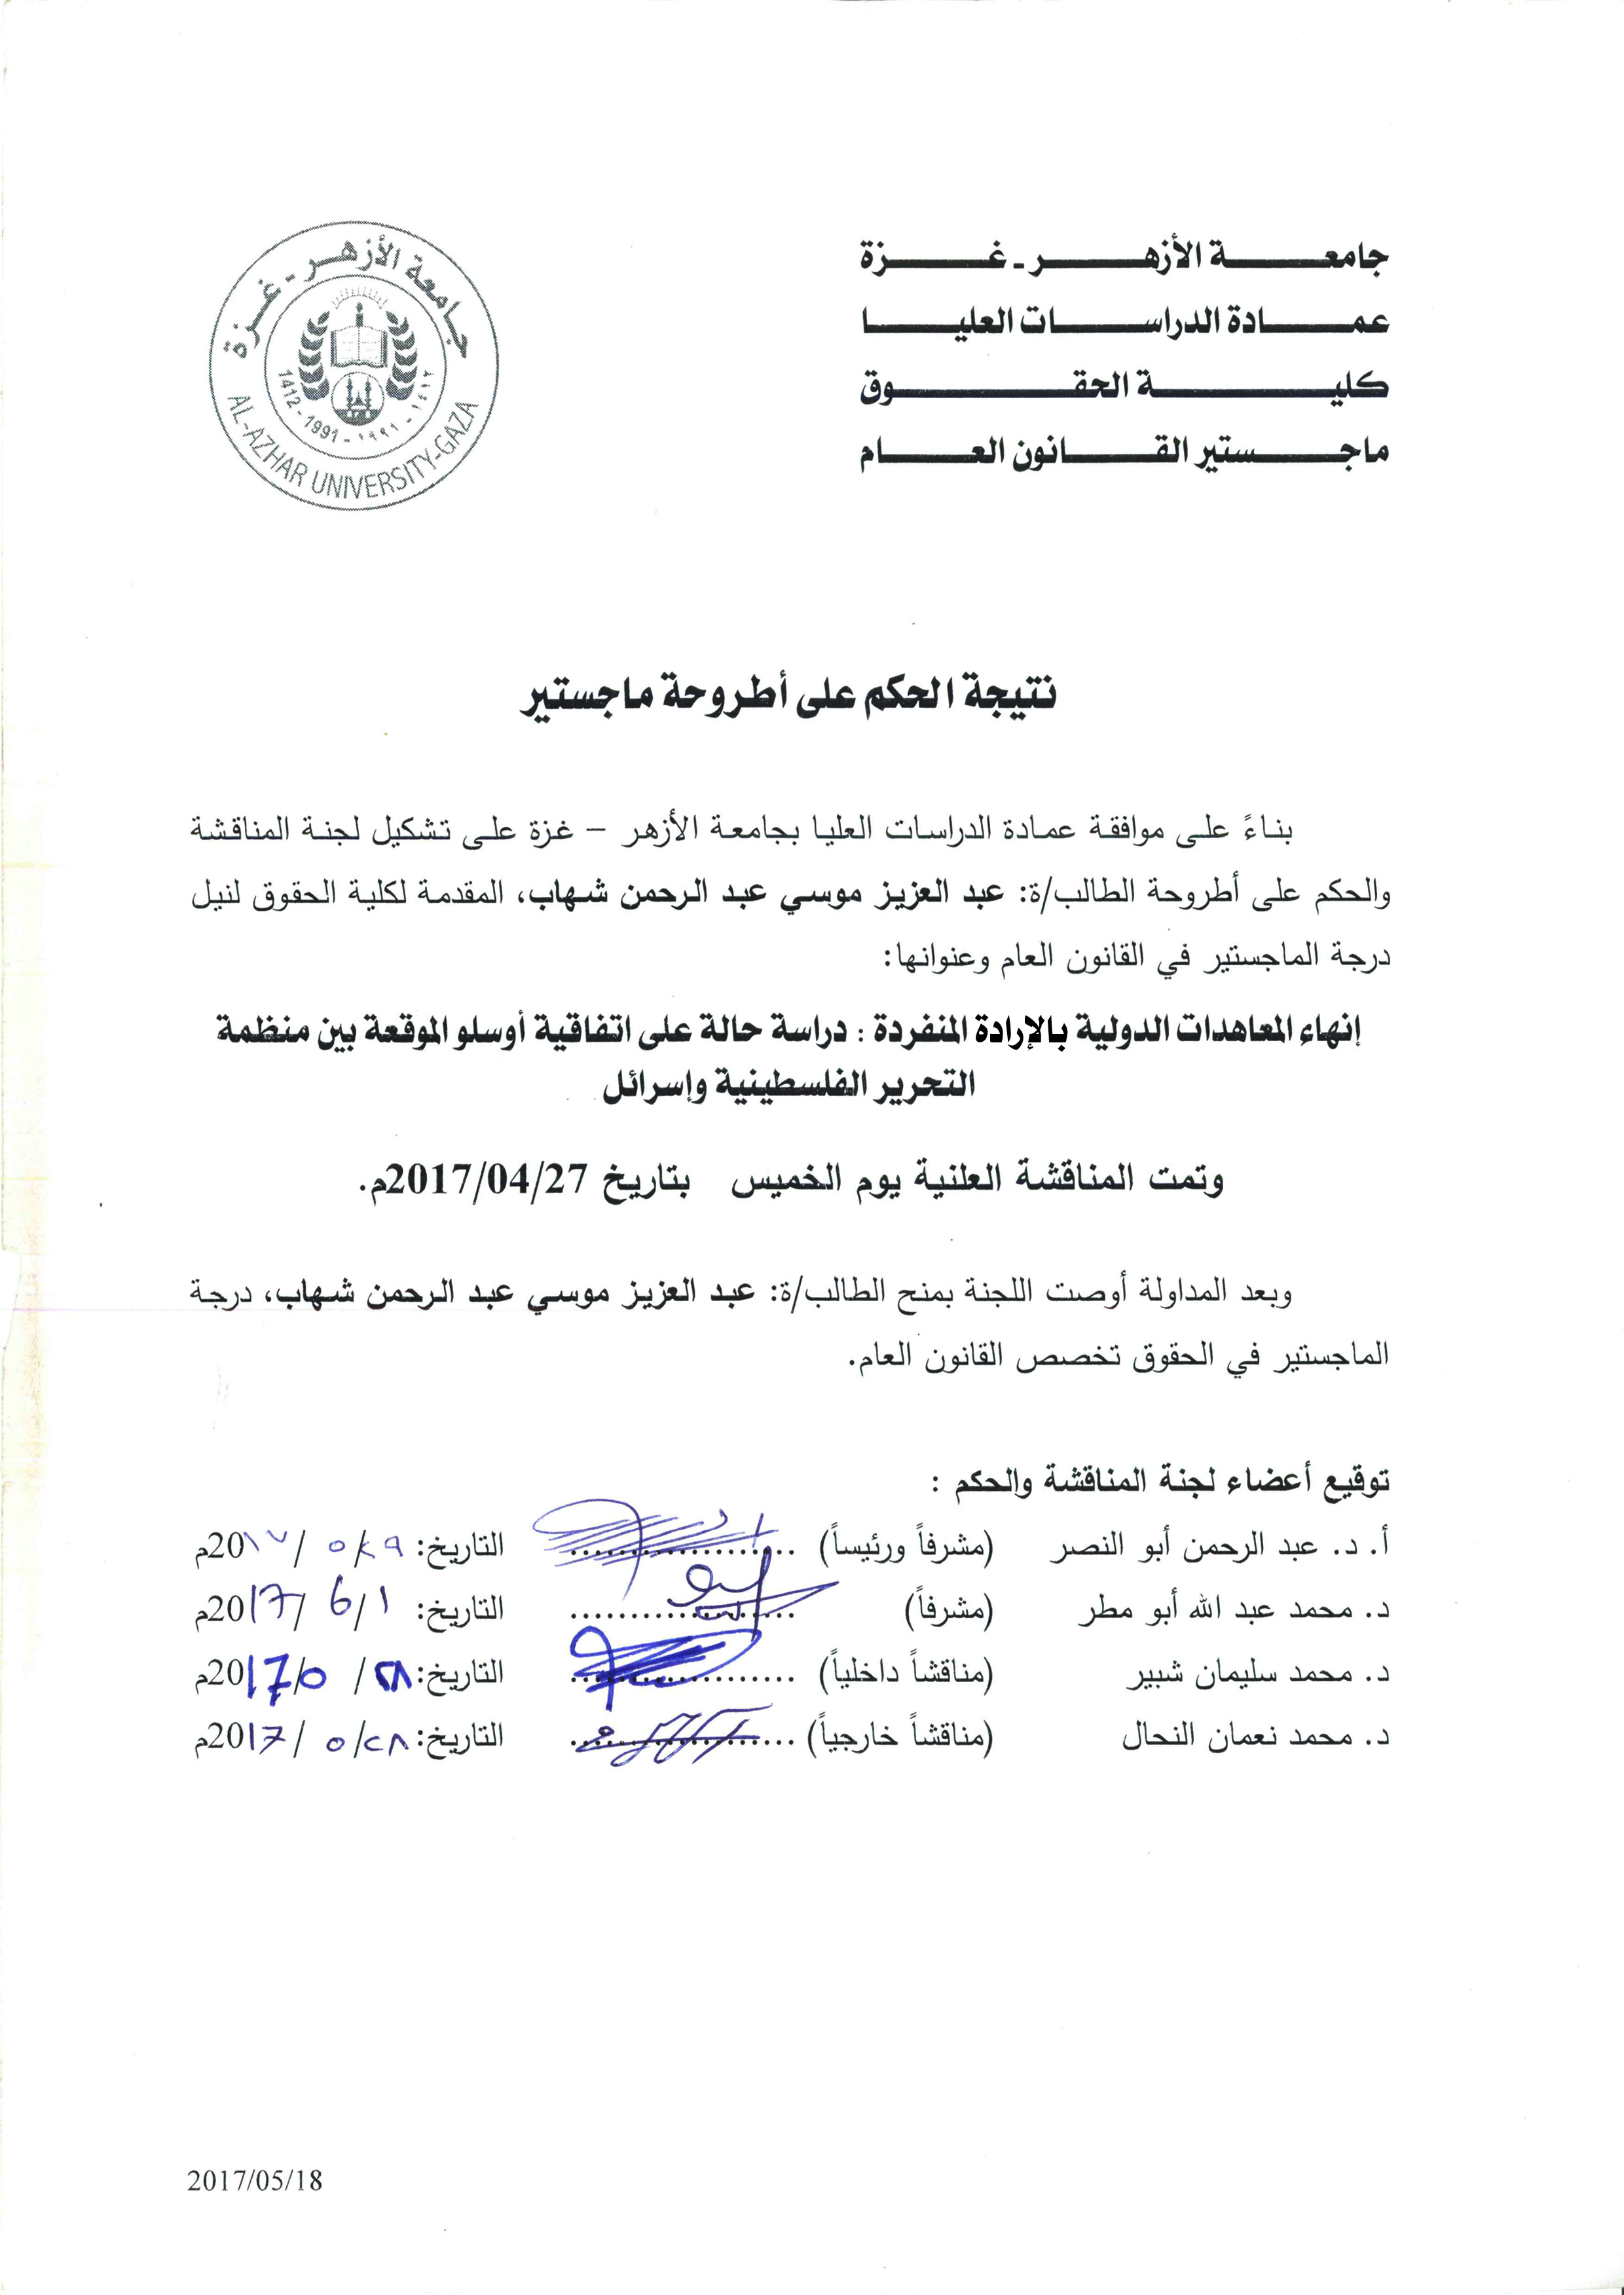 جامعة الأزهر - غزة
عمادة الدراسات العليا
كلية الحقوق
ماجستير القانون العام
جامعة الأزهر - غزة
1412 - 1991 - ١٩٩١ - ١٤١٢
AL-AZHAR UNIVERSITY-GAZA
نتيجة الحكم على أطروحة ماجستير
بناءً على موافقة عمادة الدراسات العليا بجامعة الأزهر – غزة على تشكيل لجنة المناقشة
والحكم على أطروحة الطالب/ة: عبد العزيز موسي عبد الرحمن شهاب، المقدمة لكلية الحقوق لنيل
درجة الماجستير في القانون العام وعنوانها:
إنهاء المعاهدات الدولية بالإرادة المنفردة : دراسة حالة على اتفاقية أوسلو الموقعة بين منظمة
التحرير الفلسطينية وإسرائل
وتمت المناقشة العلنية يوم الخميس بتاريخ 2017/04/27م.
وبعد المداولة أوصت اللجنة بمنح الطالب/ة: عبد العزيز موسي عبد الرحمن شهاب، درجة
الماجستير في الحقوق تخصص القانون العام.
توقيع أعضاء لجنة المناقشة والحكم :
أ. د. عبد الرحمن أبو النصر (مشرفاً ورئيساً) .................... التاريخ: ٢٩/ ٥ /20١٧م
د. محمد عبد الله أبو مطر (مشرفاً) .................... التاريخ: 1/ 6 /2017م
د. محمد سليمان شبير (مناقشاً داخلياً) .................... التاريخ: ٢٨/ ٥/2017م
د. محمد نعمان النحال (مناقشاً خارجياً) .................... التاريخ: ٢٨/ ٥ /2017م
2017/05/18